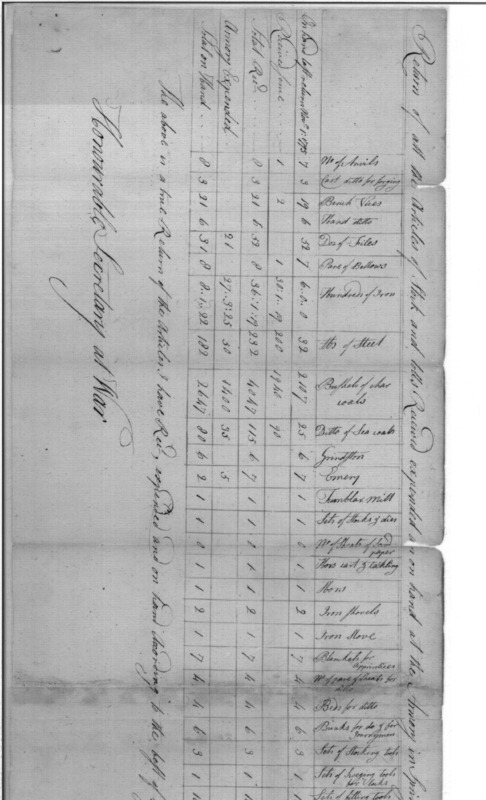 Return of all the Articles of Stock and tools Received expended & on hand at the Armory in
No. of Anvils
Cast ditto for forging
Bench Vices
Hand ditto
Doz of Files
Pare of Bellows
Hundreds of Iron
lbs of Steel
Bushels of char coals
Ditto of Sea coals
Grindston
Emery
Tumblar Mill
Sets of Stocks & dies
No of Sheets of Sand paper
Hors cart & tackling
Hors
Iron shovels
Iron Stove
Blankets for apprentices
No of pare of Sheets for ditto
Beds for ditto
Bunks for do & for
Sets of Stocking tools
Sets of Swaging tools for Locks
Sets of filling tools
On hand last return Novr 1 1798 7 3 19 6 52 7 6.2.0 32 2107 25 6 7 1 1 0 1 1 2 1 7 4 4 6 3 1
Received since 1 2 1 30.1.19 200 1940 90
Total Recd 8 3 21 6 52 8 36.1.19 232 4047 115 6 7 1 1 0 1 1 2 1 7 4 4 6 3 1
Armory Expended 21 27.3.25 50 1400 35 5
Total on Hand 8 3 21 6 31 8 8.1.22 182 2647 80 6 2 1 1 0 1 1 2 1 7 4 4 6 3 1
The above is a true Return of the Articles I have Recd, expended and on hand According to the best of
Honourable Secretary at War